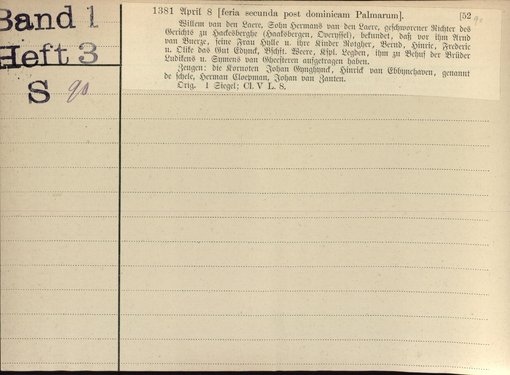 Band 1
Heft 3
S 90
1381 April 8 [feria secunda post dominicam Palmarum]. [52
90
Willem van den Laere, Sohn Hermans van den Laere, geschworener Richter des
Gerichts zu Hackesberghe (Haaksbergen, Overyssel), bekundet, daß vor ihm Arnd
van Buerze, seine Frau Hulle u. ihre Kinder Rotgher, Bernd, Hinric, Frederic
u. Olike das Gut Ebynck, Bschft. Weere, Kspl. Legden, ihm zu Behuf der Brüder
Ludikens u. Symens van Gheesteren aufgetragen haben.
Zeugen: die Kornoten Johan Gynghynck, Hinrick van Ebbynchaven, genannt
de schele, Herman Cloepman, Johan van Zanten.
Orig. 1 Siegel; Cl. V L. 8.